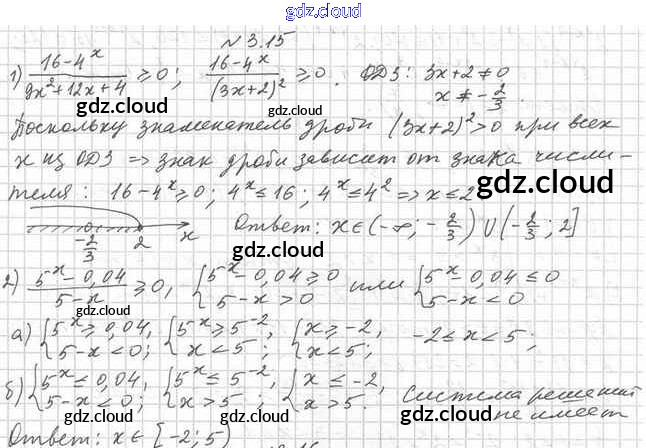 gdz.cloud
№3.15
1) (16-4^x)/(9x²+12x+4) ≥ 0; (16-4^x)/(3x+2)² ≥ 0. ОДЗ: 3x+2 ≠ 0
x ≠ -2/3.
gdz.cloud gdz.cloud
Поскольку знаменатель дроби (3x+2)² > 0 при всех
x из ОДЗ => знак дроби зависит от знака числи-
gdz.cloud
теля: 16-4^x ≥ 0; 4^x ≤ 16; 4^x ≤ 4² => x ≤ 2
gdz.cloud
-2/3 2 x Ответ: x ∈ (-∞; -2/3) ∪ (-2/3; 2]
gdz.cloud
2) (5^x-0,04)/(5-x) ≥ 0, {5^x-0,04 ≥ 0 5-x > 0 или {5^x-0,04 ≤ 0 5-x < 0
gdz.cloud gdz.cloud
а) {5^x ≥ 0,04, 5-x < 0; {5^x ≥ 5^-2, x < 5; {x ≥ -2, x < 5; -2 ≤ x < 5;
gdz.cloud
б) {5^x ≤ 0,04, 5-x < 0; {5^x ≤ 5^-2, x > 5; {x ≤ -2, x > 5. Система решений
не имеет
gdz.cloud gdz.cloud
Ответ: x ∈ [-2; 5)